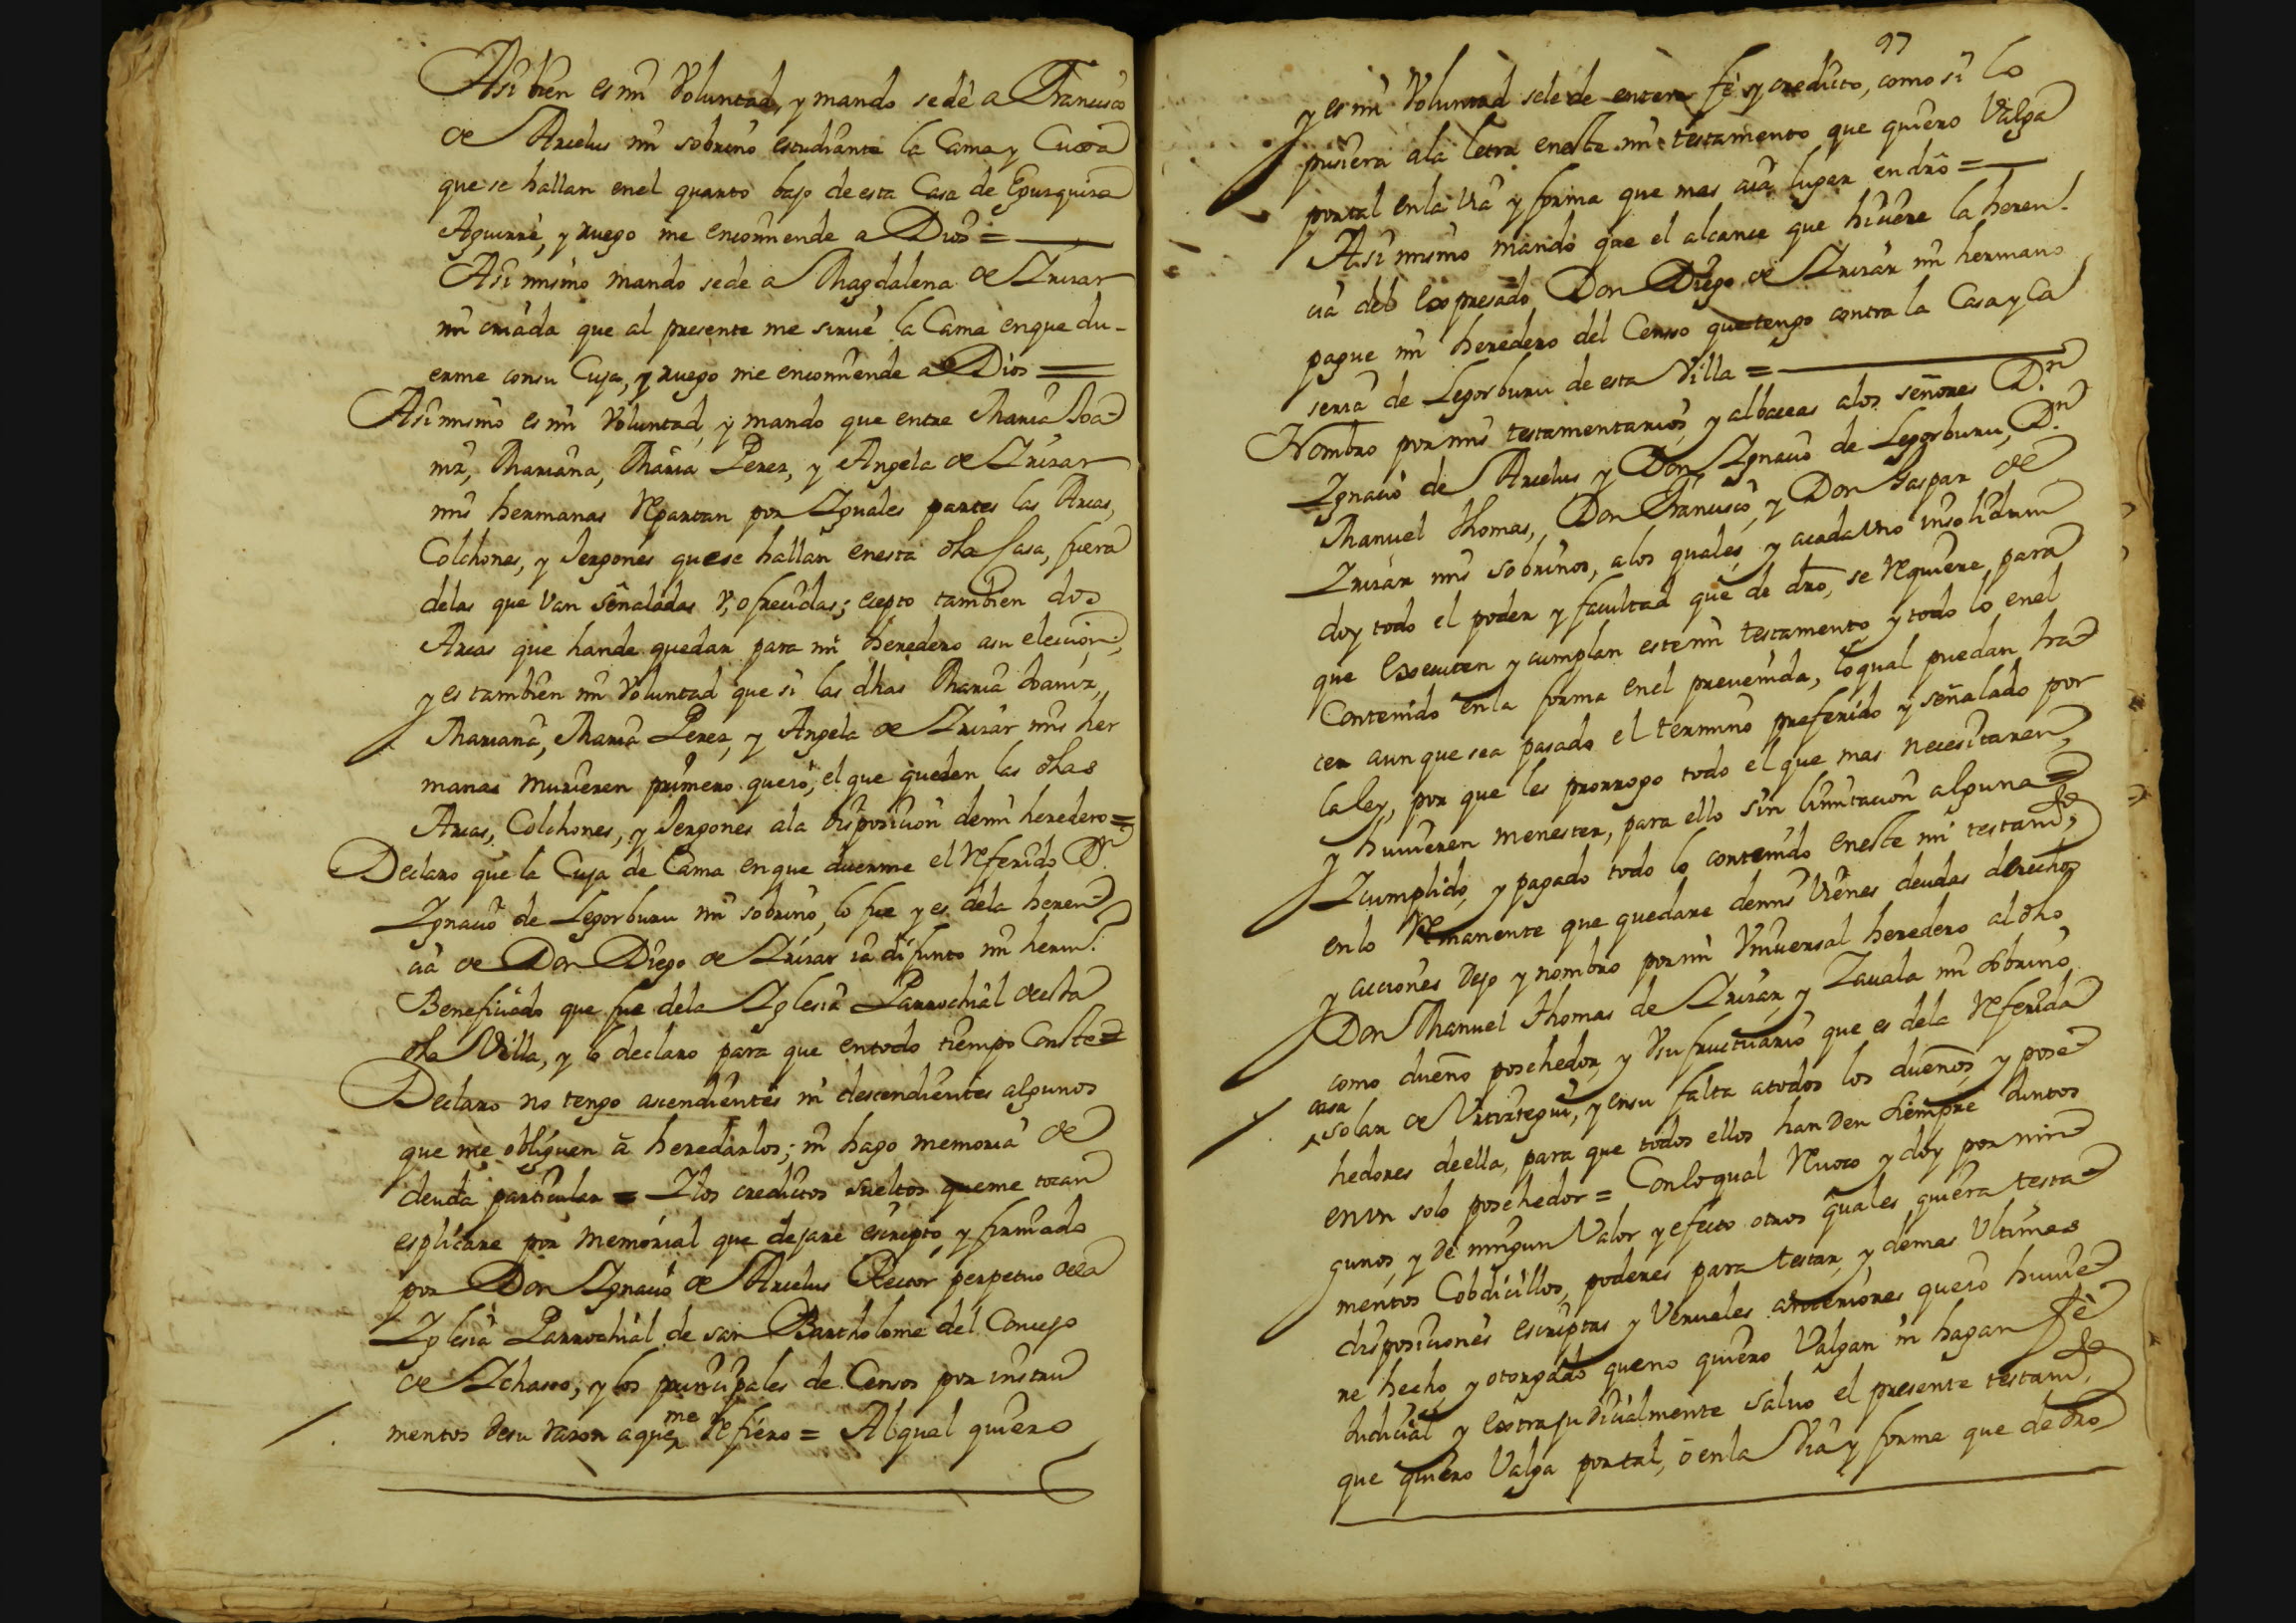 Asi bien es mi Voluntad, y mando se dè a Francisco
de Arcelus mi sobrino estudiante la Cama y Cuxa
que se hallan enel quarto bajo de esta Casa de Egurquiza
Aguirre, y ruego me encomiende a Dios =
Asi mismo mando sede a Magdalena de Irizar
mi criada que al presente me sirue la Cama enque du-
erme consu Cuja, y ruego me encomiende a Dios =
Asi mismo es mi Voluntad, y mando que entre Maria Joa
niz, Mariana, Maria Perez, y Angela de Irizar
mis hermanas Repartan por Iguales partes las Arcas,
Colchones, y Jergones quese hallan enesta dha Casa, fuera
delas que Van señaladas y, ofrecidas; ecepto tambien dos
Arcas que hande quedar para mi heredero asu eleccion,
y es tambien mi Voluntad que si las dhas Maria Joaniz,
Mariana, Maria Perez, y Angela de Irizar mis her
manas murieren primero queió, el que queden las dhas
Arcas, Colchones, y Jergones ala disposicion demi heredero =
Declaro que la Cuja de Cama enque duerme el Referido Dn.
Ignacio de Legorburu mi sobrino, lo fue y es dela heren
cia de Don Diego de Irizar ia difunto mi herm.o
Beneficiado que fue dela Iglesia Parrochial desta
dha Villa, y lo declaro para que entodo tiempo Conste =
Declaro no tengo ascendientes ni descendientes algunos
que me obliguen à heredarlos; ni hago memoria de
deuda particular = Ilos creditos sueltos queme tocan
esplicare por memorial que dejare escripto, y firmado
por Don Ignacio de Arcelus Rector perpetuo dela
Iglesia Parrochial de san Bartholome del Concejo
de Ichaso; y los principales de Censos por instru
mentos desu razon aque me Refiero = Al qual quiero
97
y es mi Voluntad sele de entera fè y credito, como si lo
pusiera ala letra eneste mi testamento que quiero Valga
portal enla via y forma que mas aia lugar endro =
Asi mismo mando que el alcance que hiciere la heren
cia del expresado Don Diego de Irizar mi hermano
pague mi heredero del Censso quetengo contra la Casa y Ca
seria de Legorburu de esta Villa =
Nombro por mis testamentarios, y albaceas alos señores Dn.
Ignacio de Arcelus y Don Ignacio de Legorburu, Dn.
Manuel Thomas, Don Francisco, y Don Gaspar de
Irizar mis sobrinos, alos quales, y acada Vno insolidum
doy todo el poder y facultad que de dro, se Requiere para
que Executen y cumplan este mi testamento y todo lo enel
Contenido enla forma enel preuenida, loqual puedan ha
cer aunque sea pasado el termino preferido y señalado por
la ley, por que les prorrogo todo el que mas necesitaren,
y huuieren menester, para ello sin limitacion alguna =
Icumplido, y pagado todo lo contenido eneste mi testamto,
enlo Remanente que quedare demis Vienes deudas derechos
y acciones Dejo y nombro pormi Vniuersal heredero al dho
Don Manuel Thomas de Irizar, y Zauala mi sobrino
como dueño poschedor, y Vsufructuario que es dela Referida
casa
solar de Vicuategui, y ensu falta atodos los dueños, y pose
hedores deella, para que todos ellos han Den Siempre Juntos
enun solo poschedor = Conloqual Reuoco y doy por nin
gunos, y De ningun Valor y efecto otros quales quiera testa
mentos Cobdicillos, poderes para testar, y demas Vltimas
disposiciones escriptas y Veruales anteriores queió huuie
re hecho, y otorgado queno quiero Valgan ni hagan fè
Judicial y Extrajudicialmente saluo el presente testamto,
que quiero Valga portal, ò enla Via y forma que de dro,